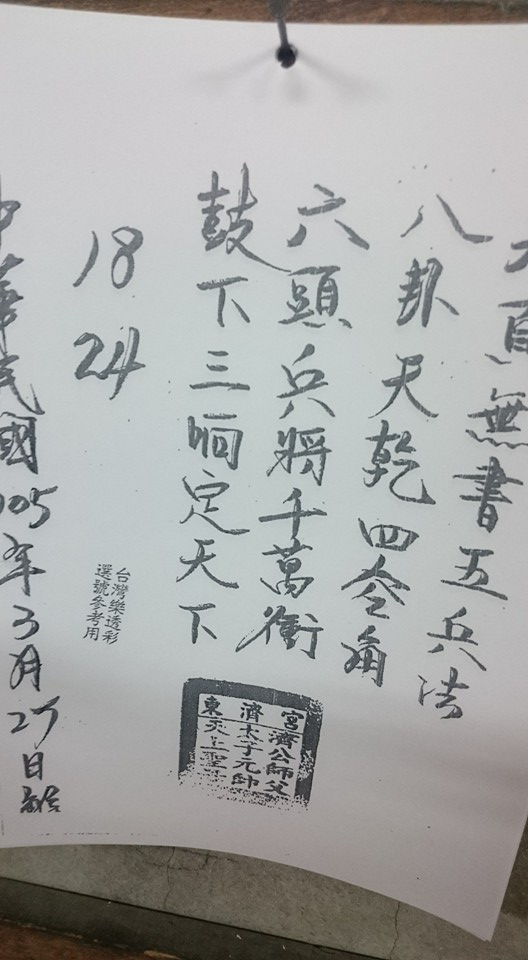 無書五兵法
八卦天乾四角
六頭兵將千萬衝
鼓下三响定天下
東濟宮
濟公師父
太子元帥
天上聖
18
24
台灣樂透彩
選號參考用
中華民國105年3月27日